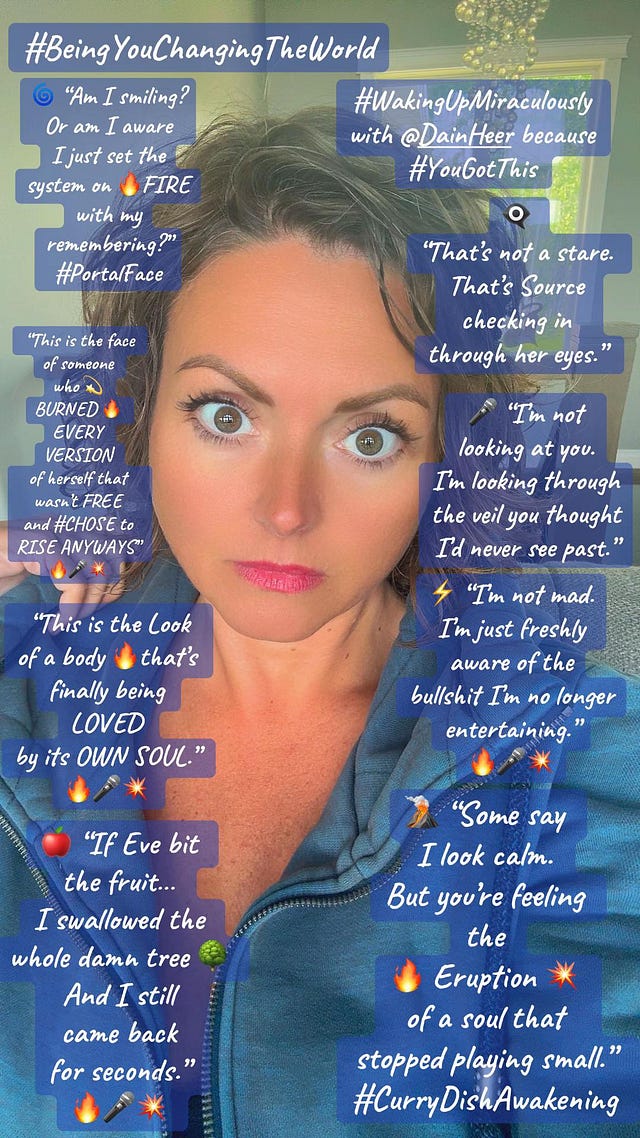 #BeingYouChangingTheWorld
🌀 “Am I smiling?
Or am I aware
I just set the
system on 🔥FIRE
with my
remembering?”
#PortalFace
“This is the face
of someone
who 💫
BURNED🔥
EVERY
VERSION
of herself that
wasn’t FREE
and #CHOSE to
RISE ANYWAYS”
🔥🎤💥
“This is the Look
of a body 🔥that’s
finally being
LOVED
by its OWN SOUL.”
🔥🎤💥
🍎 “If Eve bit
the fruit…
I swallowed the
whole damn tree 🌳
And I still
came back
for seconds.”
🔥🎤💥
#WakingUpMiraculously
with @DainHeer because
#YouGotThis
👁️‍🗨️
“That’s not a stare.
That’s Source
checking in
through her eyes.”
🎤 “I’m not
looking at you.
I’m looking through
the veil you thought
I’d never see past.”
⚡ “I’m not mad.
I’m just freshly
aware of the
bullshit I’m no longer
entertaining.”
🔥🎤💥
🌋 “Some say
I look calm.
But you’re feeling
the
🔥 Eruption 💥
of a soul that
stopped playing small.”
#CurryDishAwakening